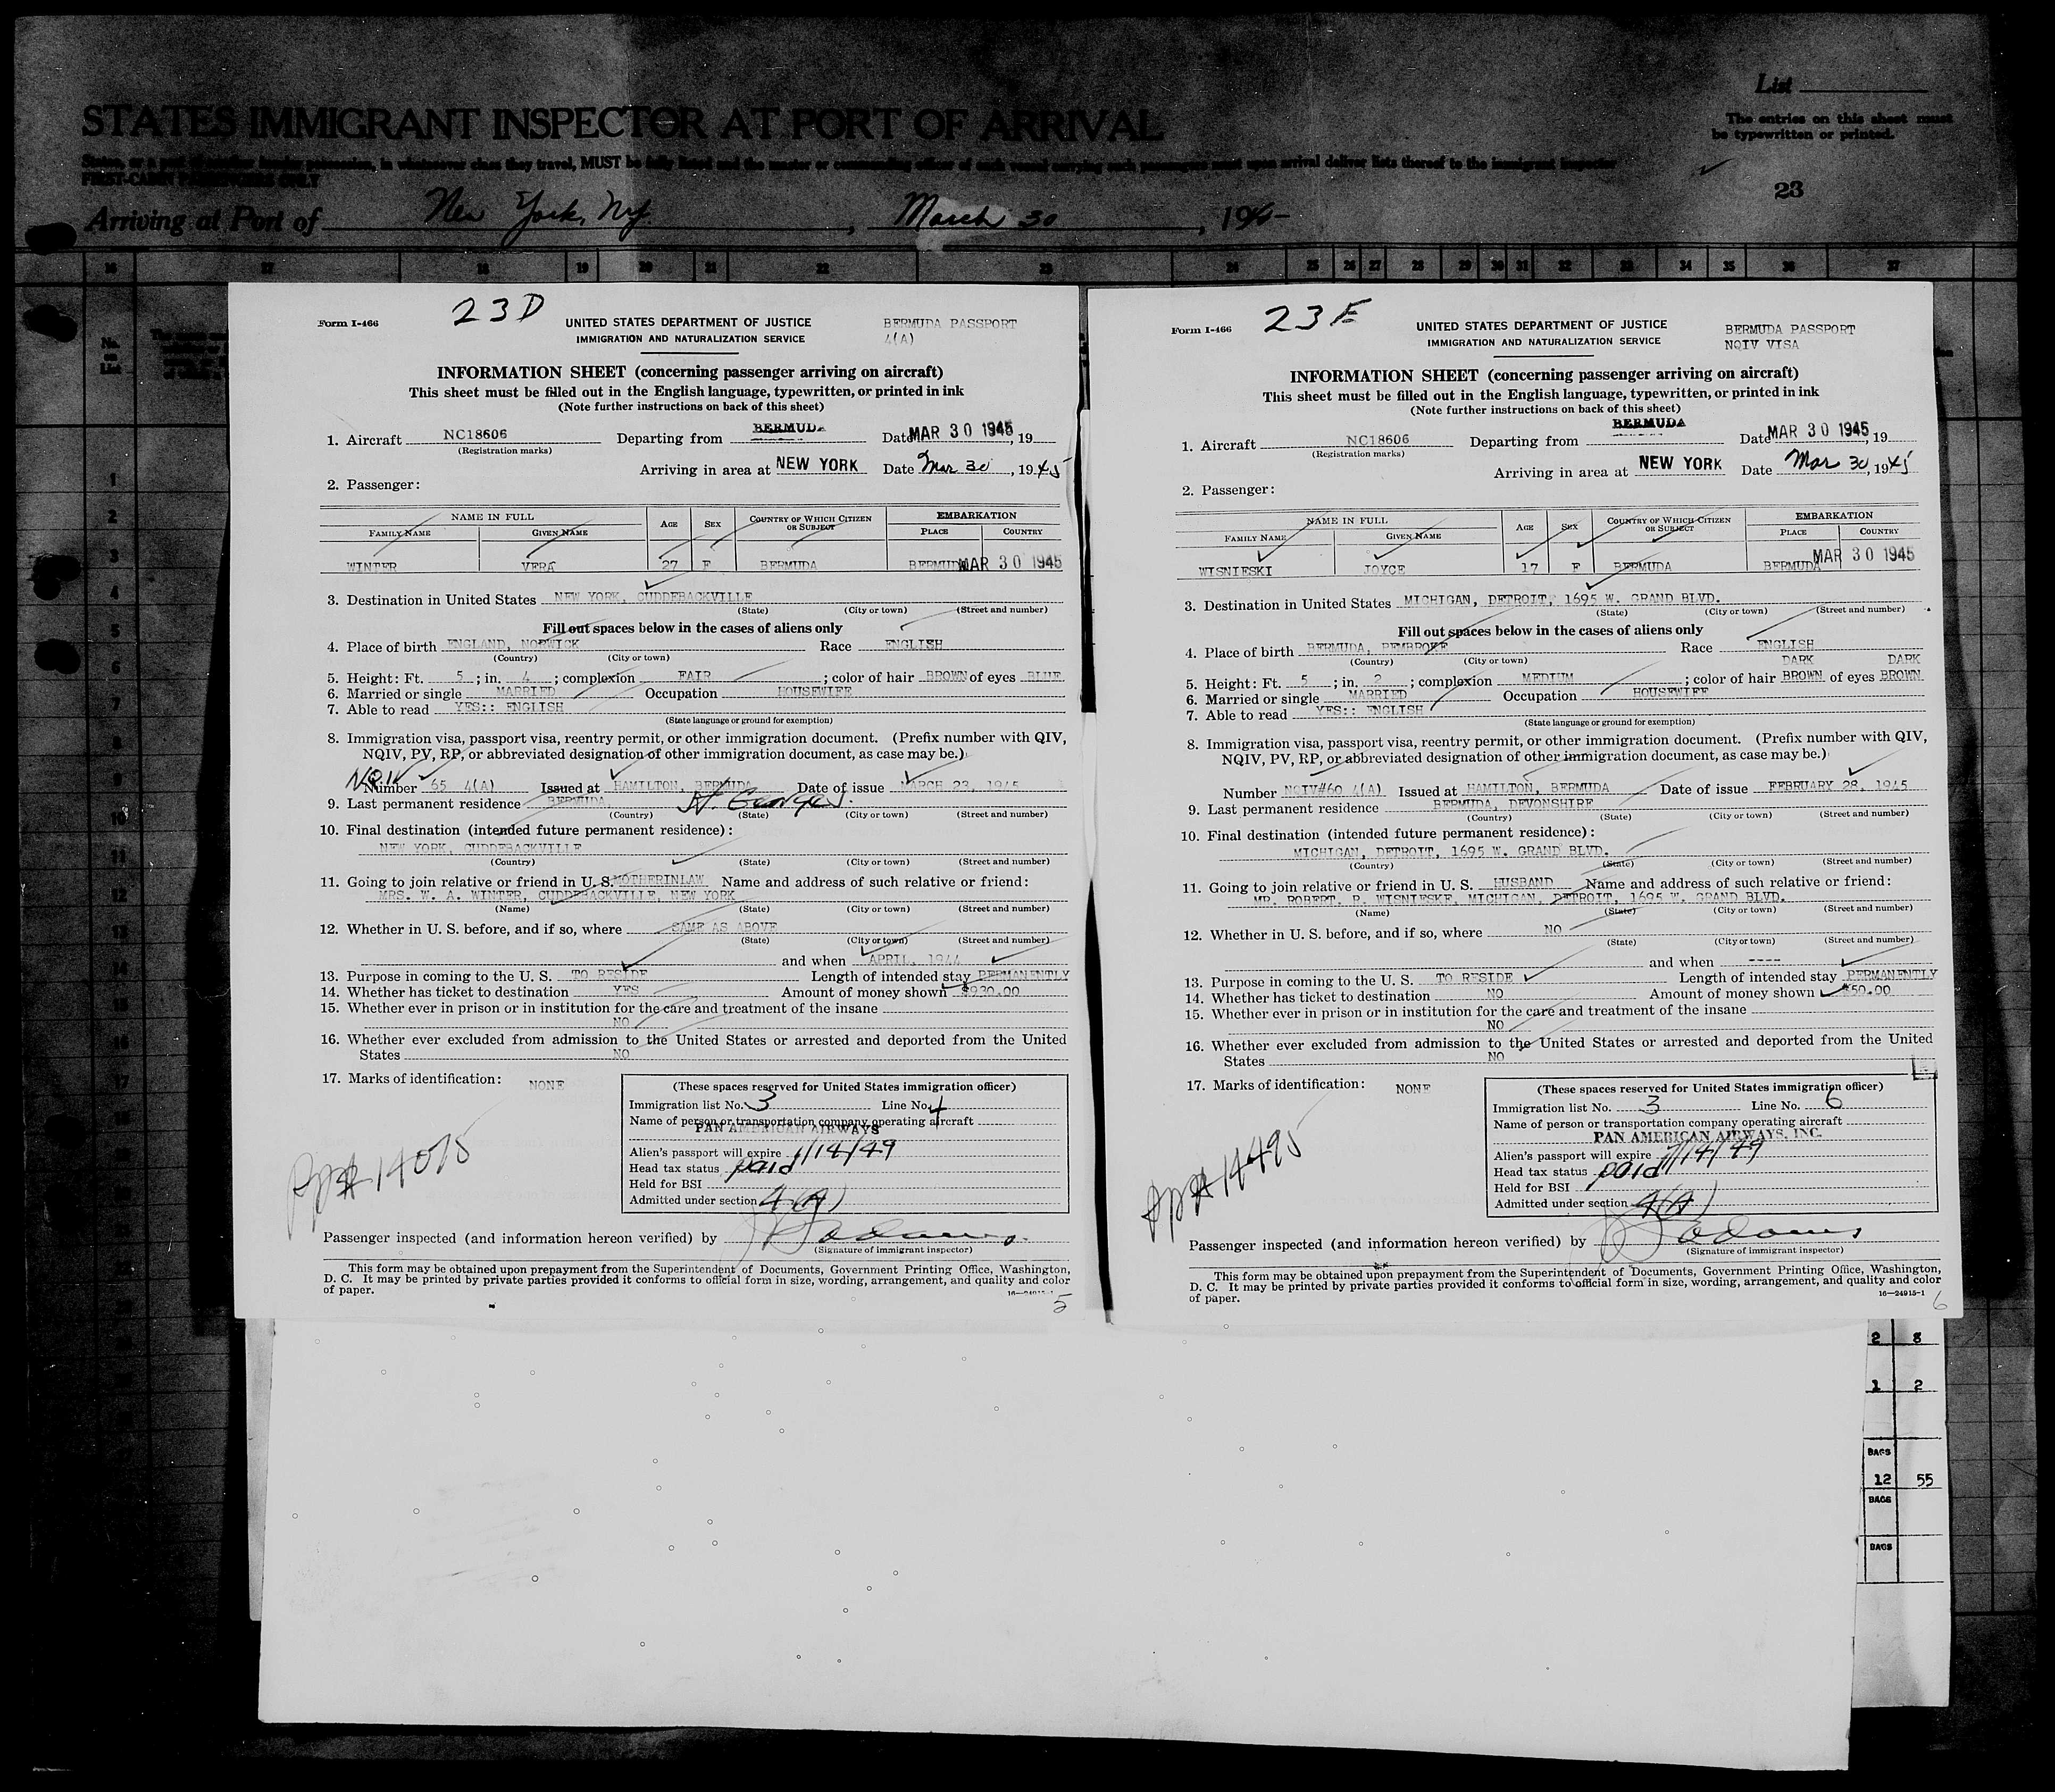 List
STATES IMMIGRANT INSPECTOR AT PORT OF ARRIVAL
The entries on this sheet must
be typewritten or printed.
23
Arriving at Port of New York, N.Y. , March 30 , 19
16 17 18 19 20 21 22 23 24 25 26 27 28 29 30 31 32 33 34 35 36 37
23D
Form I-466
UNITED STATES DEPARTMENT OF JUSTICE
IMMIGRATION AND NATURALIZATION SERVICE
BERMUDA PASSPORT
4(A)
INFORMATION SHEET (concerning passenger arriving on aircraft)
This sheet must be filled out in the English language, typewritten, or printed in ink
(Note further instructions on back of this sheet)
1. Aircraft NC18606 Departing from BERMUDA Date MAR 30 1945, 19
(Registration marks)
Arriving in area at NEW YORK Date Mar 30, 1945
2. Passenger:
NAME IN FULL AGE SEX COUNTRY OF WHICH CITIZEN OR SUBJECT EMBARKATION
FAMILY NAME GIVEN NAME PLACE COUNTRY
WINTER VERA 27 F BERMUDA BERMUDA MAR 30 1945
3. Destination in United States NEW YORK, CUDDEBACKVILLE
(State) (City or town) (Street and number)
Fill out spaces below in the cases of aliens only
4. Place of birth ENGLAND, NORWICK Race ENGLISH
(Country) (City or town)
5. Height: Ft. 5 ; in. 4 ; complexion FAIR ; color of hair BROWN of eyes BLUE
6. Married or single MARRIED Occupation HOUSEWIFE
7. Able to read YES:: ENGLISH
(State language or ground for exemption)
8. Immigration visa, passport visa, reentry permit, or other immigration document. (Prefix number with QIV,
NQIV, PV, RP, or abbreviated designation of other immigration document, as case may be.)
NQIV
Number 65 4(A) Issued at HAMILTON, BERMUDA Date of issue MARCH 23, 1945
9. Last permanent residence BERMUDA, St. Georges.
(Country) (State) (City or town) (Street and number)
10. Final destination (intended future permanent residence):
NEW YORK, CUDDEBACKVILLE
(Country) (State) (City or town) (Street and number)
11. Going to join relative or friend in U. S. MOTHERINLAW Name and address of such relative or friend:
MRS. W. A. WINTER, CUDDEBACKVILLE, NEW YORK
(Name) (State) (City or town) (Street and number)
12. Whether in U. S. before, and if so, where SAME AS ABOVE
(State) (City or town) (Street and number)
and when APRIL, 1944
13. Purpose in coming to the U. S. TO RESIDE Length of intended stay PERMANENTLY
14. Whether has ticket to destination YES Amount of money shown $930.00
15. Whether ever in prison or in institution for the care and treatment of the insane
NO
16. Whether ever excluded from admission to the United States or arrested and deported from the United
States NO
17. Marks of identification: NONE
(These spaces reserved for United States immigration officer)
Immigration list No. 3 Line No. 4
Name of person or transportation company operating aircraft
PAN AMERICAN AIRWAYS
Alien's passport will expire 1/14/49
Head tax status paid
Held for BSI
Admitted under section 4(A)
14075
Passenger inspected (and information hereon verified) by Adams
(Signature of immigrant inspector)
This form may be obtained upon prepayment from the Superintendent of Documents, Government Printing Office, Washington,
D. C. It may be printed by private parties provided it conforms to official form in size, wording, arrangement, and quality and color
of paper.
16—24915-1
5
23E
Form I-466
UNITED STATES DEPARTMENT OF JUSTICE
IMMIGRATION AND NATURALIZATION SERVICE
BERMUDA PASSPORT
NQIV VISA
INFORMATION SHEET (concerning passenger arriving on aircraft)
This sheet must be filled out in the English language, typewritten, or printed in ink
(Note further instructions on back of this sheet)
1. Aircraft NC18606 Departing from BERMUDA Date MAR 30 1945, 19
(Registration marks)
Arriving in area at NEW YORK Date Mar 30, 1945
2. Passenger:
NAME IN FULL AGE SEX COUNTRY OF WHICH CITIZEN OR SUBJECT EMBARKATION
FAMILY NAME GIVEN NAME PLACE COUNTRY
WISNIESKI JOYCE 17 F BERMUDA BERMUDA MAR 30 1945
3. Destination in United States MICHIGAN, DETROIT, 1695 W. GRAND BLVD.
(State) (City or town) (Street and number)
Fill out spaces below in the cases of aliens only
4. Place of birth BERMUDA, PEMBROKE Race ENGLISH
(Country) (City or town)
DARK DARK
5. Height: Ft. 5 ; in. 2 ; complexion MEDIUM ; color of hair BROWN of eyes BROWN
6. Married or single MARRIED Occupation HOUSEWIFE
7. Able to read YES:: ENGLISH
(State language or ground for exemption)
8. Immigration visa, passport visa, reentry permit, or other immigration document. (Prefix number with QIV,
NQIV, PV, RP, or abbreviated designation of other immigration document, as case may be.)
Number NQIV#60 4(A) Issued at HAMILTON, BERMUDA Date of issue FEBRUARY 28, 1945
9. Last permanent residence BERMUDA, DEVONSHIRE
(Country) (State) (City or town) (Street and number)
10. Final destination (intended future permanent residence):
MICHIGAN, DETROIT, 1695 W. GRAND BLVD.
(Country) (State) (City or town) (Street and number)
11. Going to join relative or friend in U. S. HUSBAND Name and address of such relative or friend:
MR. ROBERT. R. WISNIESKE, MICHIGAN, DETROIT, 1695 W. GRAND BLVD.
(Name) (State) (City or town) (Street and number)
12. Whether in U. S. before, and if so, where NO
(State) (City or town) (Street and number)
and when ----
13. Purpose in coming to the U. S. TO RESIDE Length of intended stay PERMANENTLY
14. Whether has ticket to destination NO Amount of money shown $50.00
15. Whether ever in prison or in institution for the care and treatment of the insane
NO
16. Whether ever excluded from admission to the United States or arrested and deported from the United
States NO
17. Marks of identification: NONE
(These spaces reserved for United States immigration officer)
Immigration list No. 3 Line No. 6
Name of person or transportation company operating aircraft
PAN AMERICAN AIRWAYS, INC.
Alien's passport will expire 1/14/49
Head tax status paid
Held for BSI
Admitted under section 4(A)
14495
Passenger inspected (and information hereon verified) by Adams
(Signature of immigrant inspector)
This form may be obtained upon prepayment from the Superintendent of Documents, Government Printing Office, Washington,
D. C. It may be printed by private parties provided it conforms to official form in size, wording, arrangement, and quality and color
of paper.
16—24915-1
6
2 8
1 2
BAGS
12 55
BAGS
BAGS